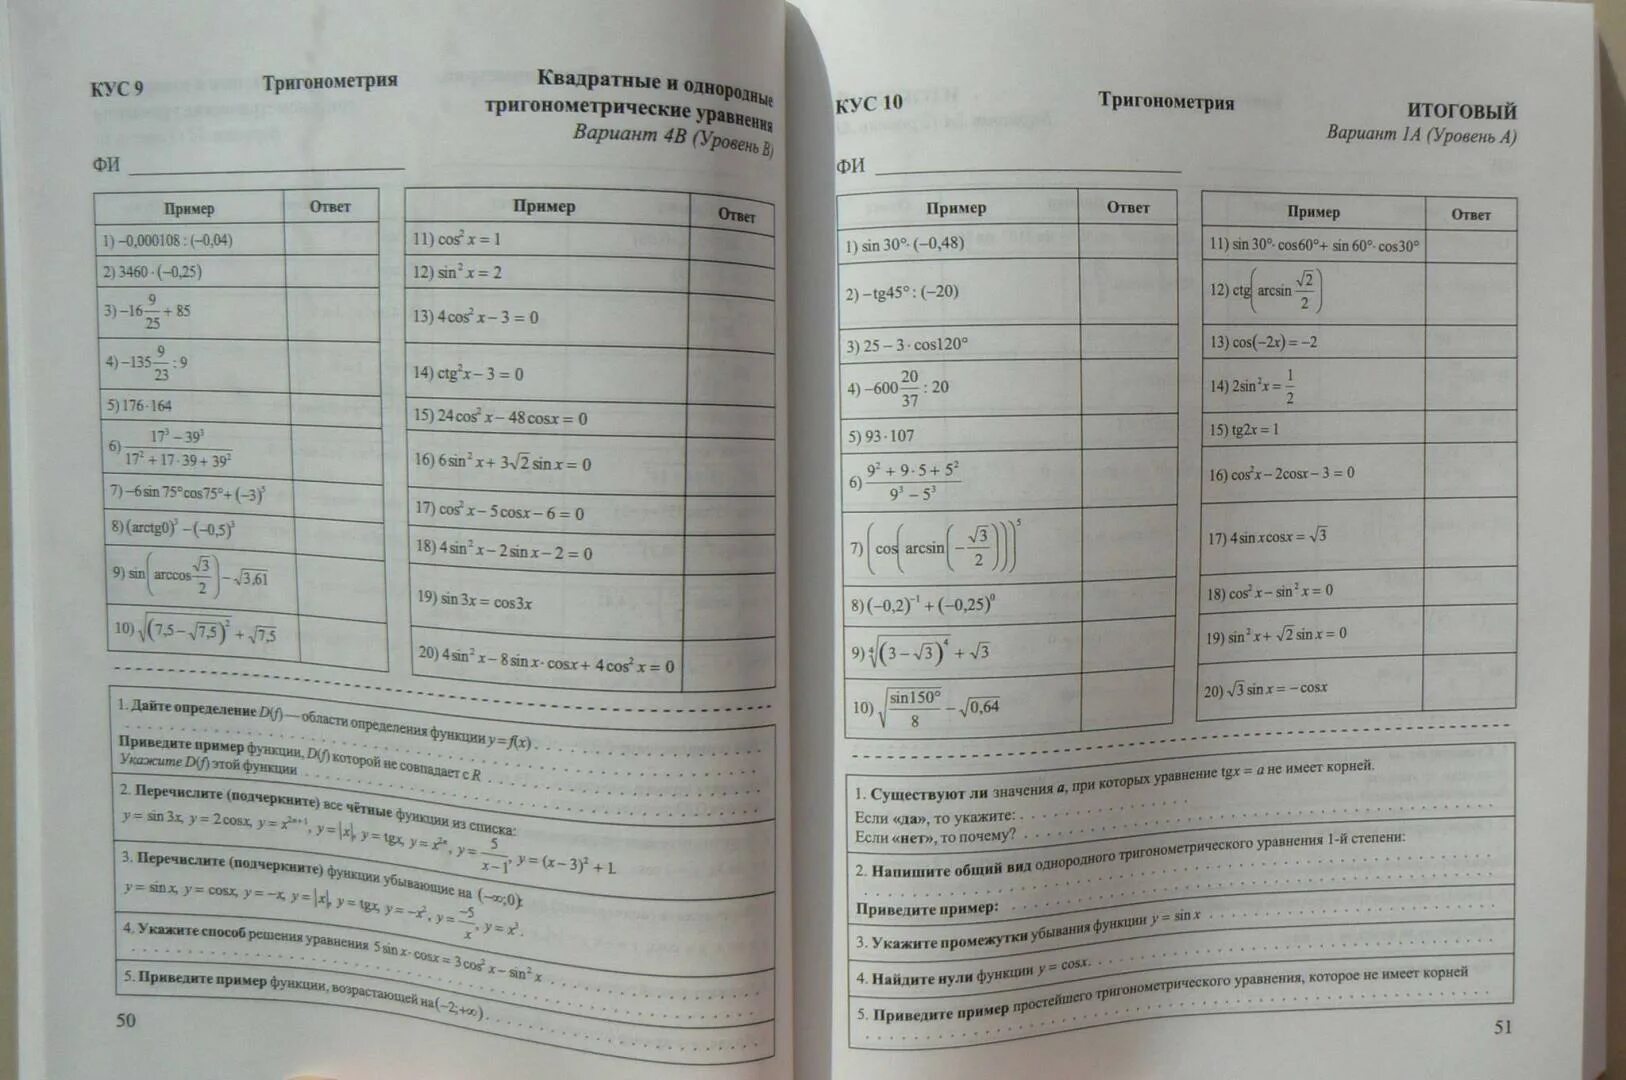 КУС 9 Тригонометрия Квадратные и однородные
тригонометрические уравнения
Вариант 4В (Уровень В)
ФИ
Пример Ответ
1) −0,000108 : (−0,04)
2) 3460 · (−0,25)
3) −16 9/25 + 85
4) −135 9/23 : 9
5) 176 · 164
6) (17³ − 39³)/(17² + 17 · 39 + 39²)
7) −6 sin 75° cos 75° + (−3)³
8) (arctg0)³ − (−0,5)³
9) sin(arccos √3/2) − √3,61
10) √((7,5 − √7,5)²) + √7,5
Пример Ответ
11) cos² x = 1
12) sin² x = 2
13) 4cos² x − 3 = 0
14) ctg²x − 3 = 0
15) 24cos² x − 48cosx = 0
16) 6sin² x + 3√2 sin x = 0
17) cos² x − 5cosx − 6 = 0
18) 4sin² x − 2sin x − 2 = 0
19) sin 3x = cos3x
20) 4sin² x − 8sin x · cosx + 4cos² x = 0
1. Дайте определение D(f) — области определения функции y = f(x)
Приведите пример функции, D(f) которой не совпадает с R
Укажите D(f) этой функции
2. Перечислите (подчеркните) все чётные функции из списка:
y = sin 3x, y = 2cosx, y = x²ⁿ⁺¹, y = |x|, y = tgx, y = x²ⁿ, y = 5/(x − 1), y = (x − 3)² + 1.
3. Перечислите (подчеркните) функции убывающие на (−∞;0):
y = sinx, y = cosx, y = −x, y = |x|, y = tgx, y = −x², y = −5/x, y = x³.
4. Укажите способ решения уравнения 5 sin x · cosx = 3cos² x − sin² x
5. Приведите пример функции, возрастающей на (−2;+∞)
50
КУС 10 Тригонометрия ИТОГОВЫЙ
Вариант 1А (Уровень А)
ФИ
Пример Ответ
1) sin 30° · (−0,48)
2) −tg45° : (−20)
3) 25 − 3 · cos120°
4) −600 20/37 : 20
5) 93 · 107
6) (9² + 9 · 5 + 5²)/(9³ − 5³)
7) (cos(arcsin(−√3/2)))⁵
8) (−0,2)⁻¹ + (−0,25)⁰
9) ⁴√((3 − √3)⁴) + √3
10) √(sin150°/8) − √0,64
Пример Ответ
11) sin 30° · cos60° + sin 60° · cos30°
12) ctg(arcsin √2/2)
13) cos(−2x) = −2
14) 2sin²x = 1/2
15) tg2x = 1
16) cos²x − 2cosx − 3 = 0
17) 4 sin xcosx = √3
18) cos² x − sin² x = 0
19) sin² x + √2 sin x = 0
20) √3 sin x = −cosx
1. Существуют ли значения a, при которых уравнение tgx = a не имеет корней.
Если «да», то укажите:
Если «нет», то почему?
2. Напишите общий вид однородного тригонометрического уравнения 1-й степени:
Приведите пример:
3. Укажите промежутки убывания функции y = sin x
4. Найдите нули функции y = cosx.
5. Приведите пример простейшего тригонометрического уравнения, которое не имеет корней
51